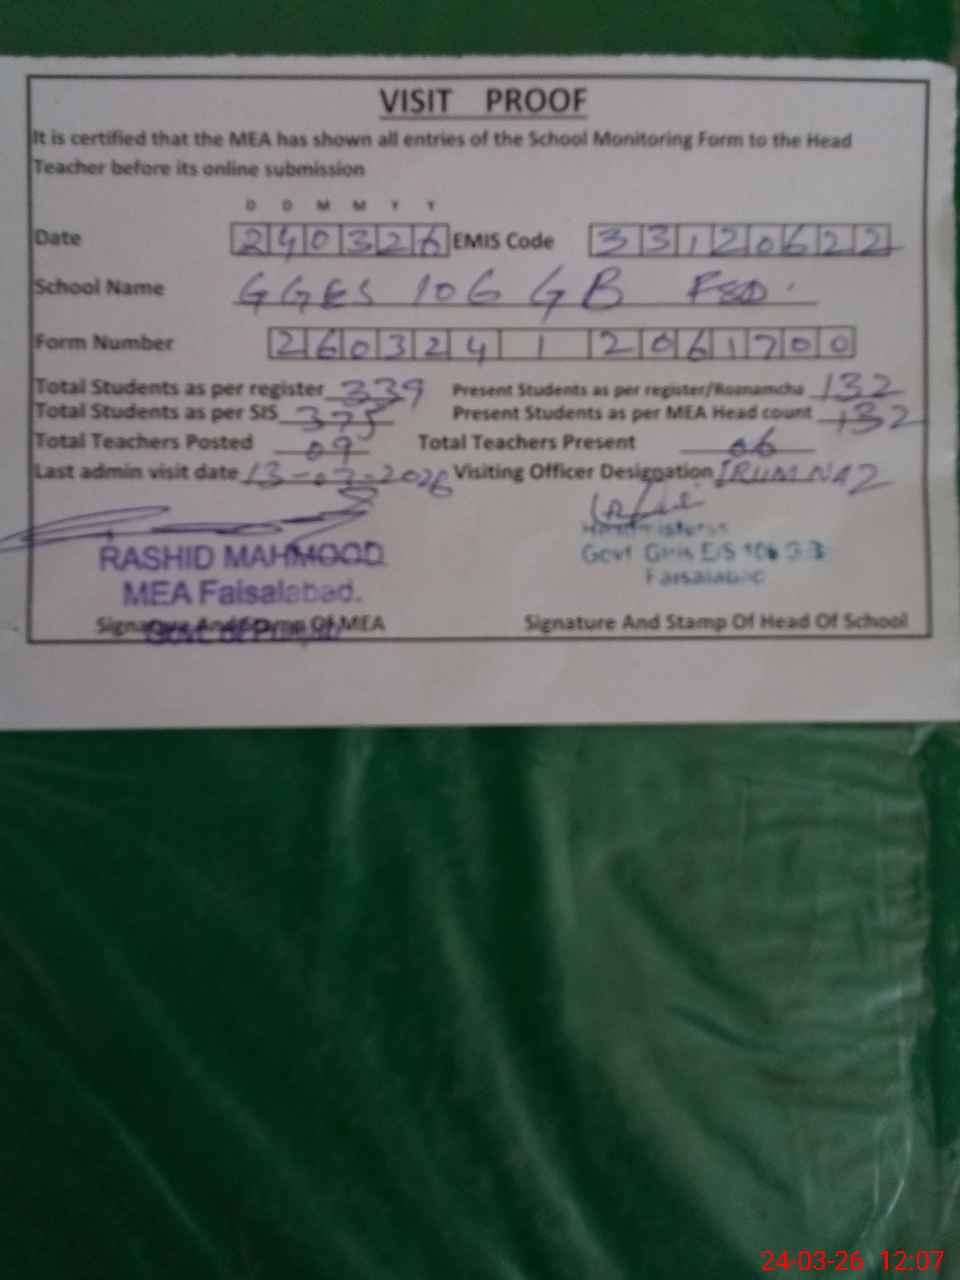 VISIT PROOF
It is certified that the MEA has shown all entries of the School Monitoring Form to the Head
Teacher before its online submission
D D M M Y Y
Date 240326 EMIS Code 33120622
School Name GGES 106 GB FSD.
Form Number 260324 1 2061700
Total Students as per register 339 Present Students as per register/Roznamcha 132
Total Students as per SIS 375 Present Students as per MEA Head count 132
Total Teachers Posted 09 Total Teachers Present 06
Last admin visit date 13-02-2026 Visiting Officer Designation IRUM NAZ
RASHID MAHMOOD
MEA Faisalabad.
Headmistress
Govt Girls E/S 106 G.B
Faisalabad
Signature And Stamp Of MEA Signature And Stamp Of Head Of School
24-03-26 12:07